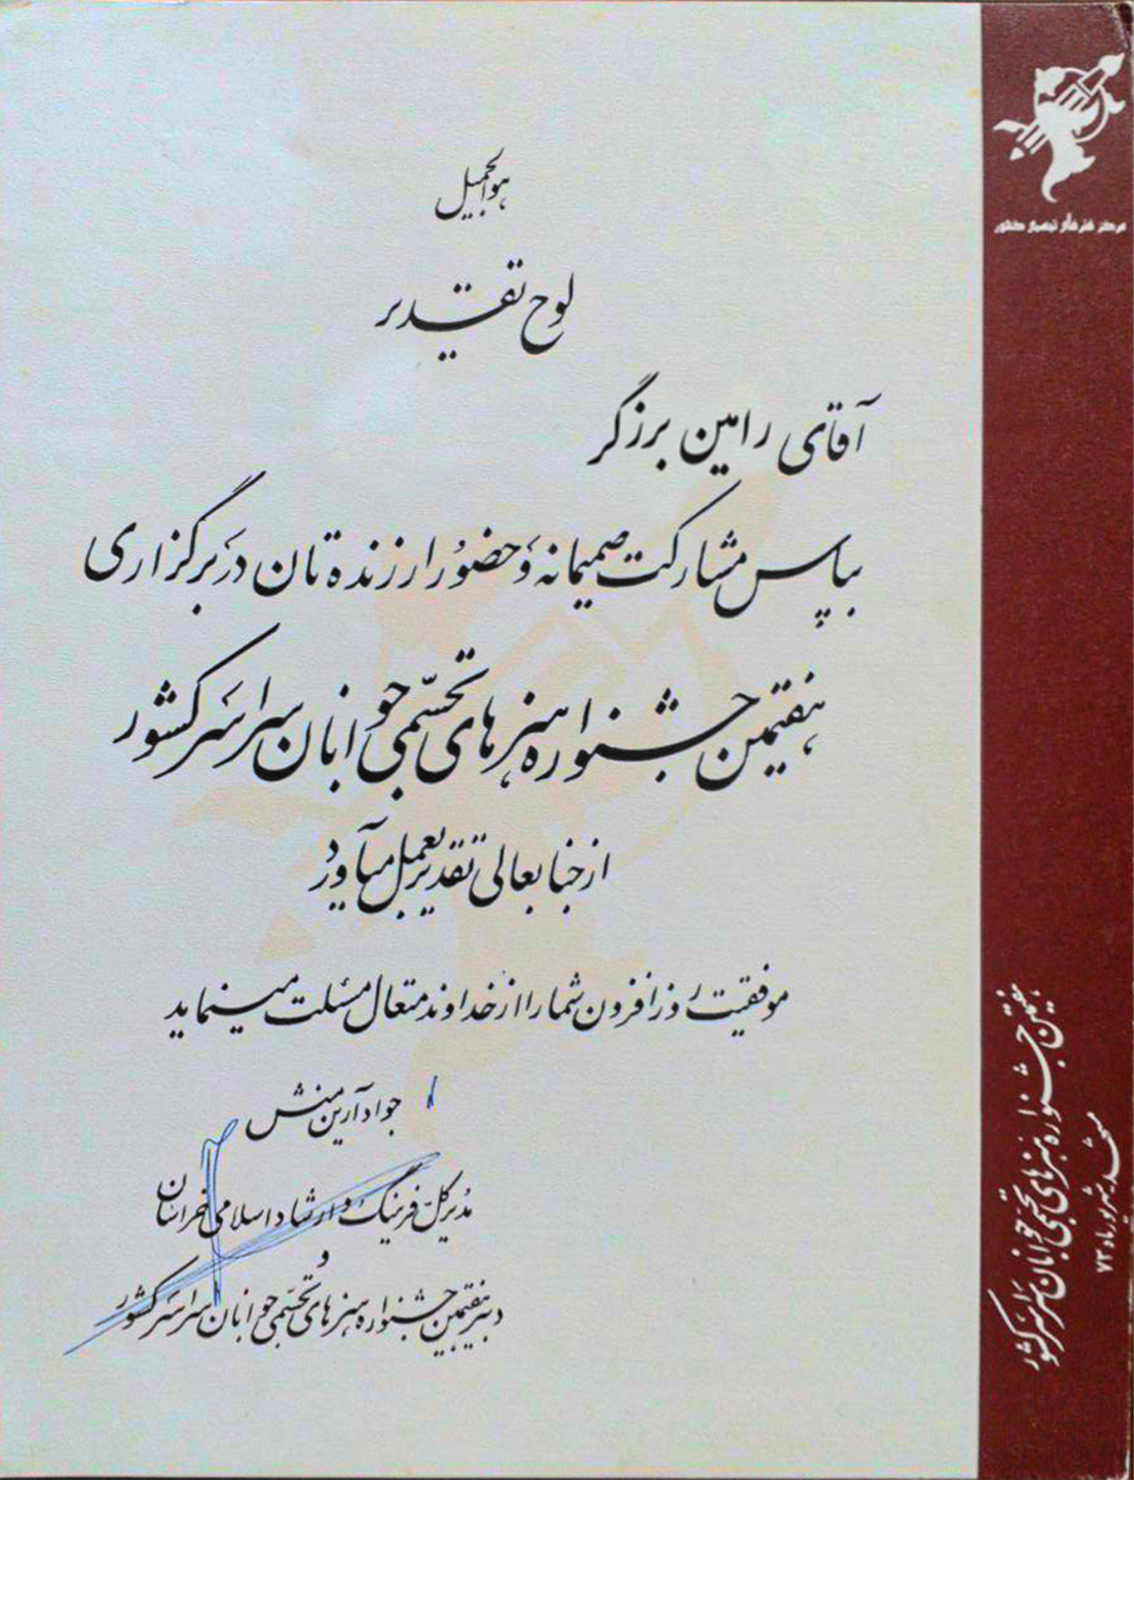 هوالجمیل
لوح تقدیر
آقای رامین برزگر
بپاس مشارکت صمیمانه و حضور ارزنده تان در برگزاری
هفتمین جشنواره هنرهای تجسمی جوانان سراسر کشور
از جنابعالی تقدیر بعمل میآورد
موفقیت روزافزون شما را از خداوند متعال مسئلت مینماید
جواد آرین منش
مدیر کل فرهنگ و ارشاد اسلامی خراسان
و
دبیر هفتمین جشنواره هنرهای تجسمی جوانان سراسر کشور
مرکز هنرهای تجسمی کشور
هفتمین جشنواره هنرهای تجسمی جوانان سراسر کشور
مشهد شهریورماه ۷۳